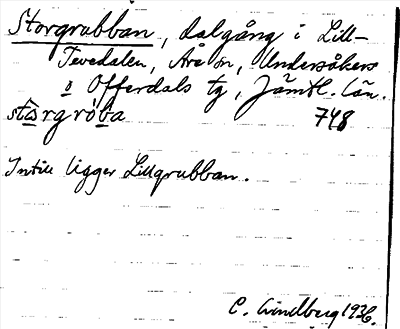 Storgrubban, dalgång i Lill-
Tevedalen, Åre sn, Undersåkers
o Offerdals tg, Jämtl. län.
stårgröba 748
Intill ligger Lillgrubban.
C. Lindberg 1936.